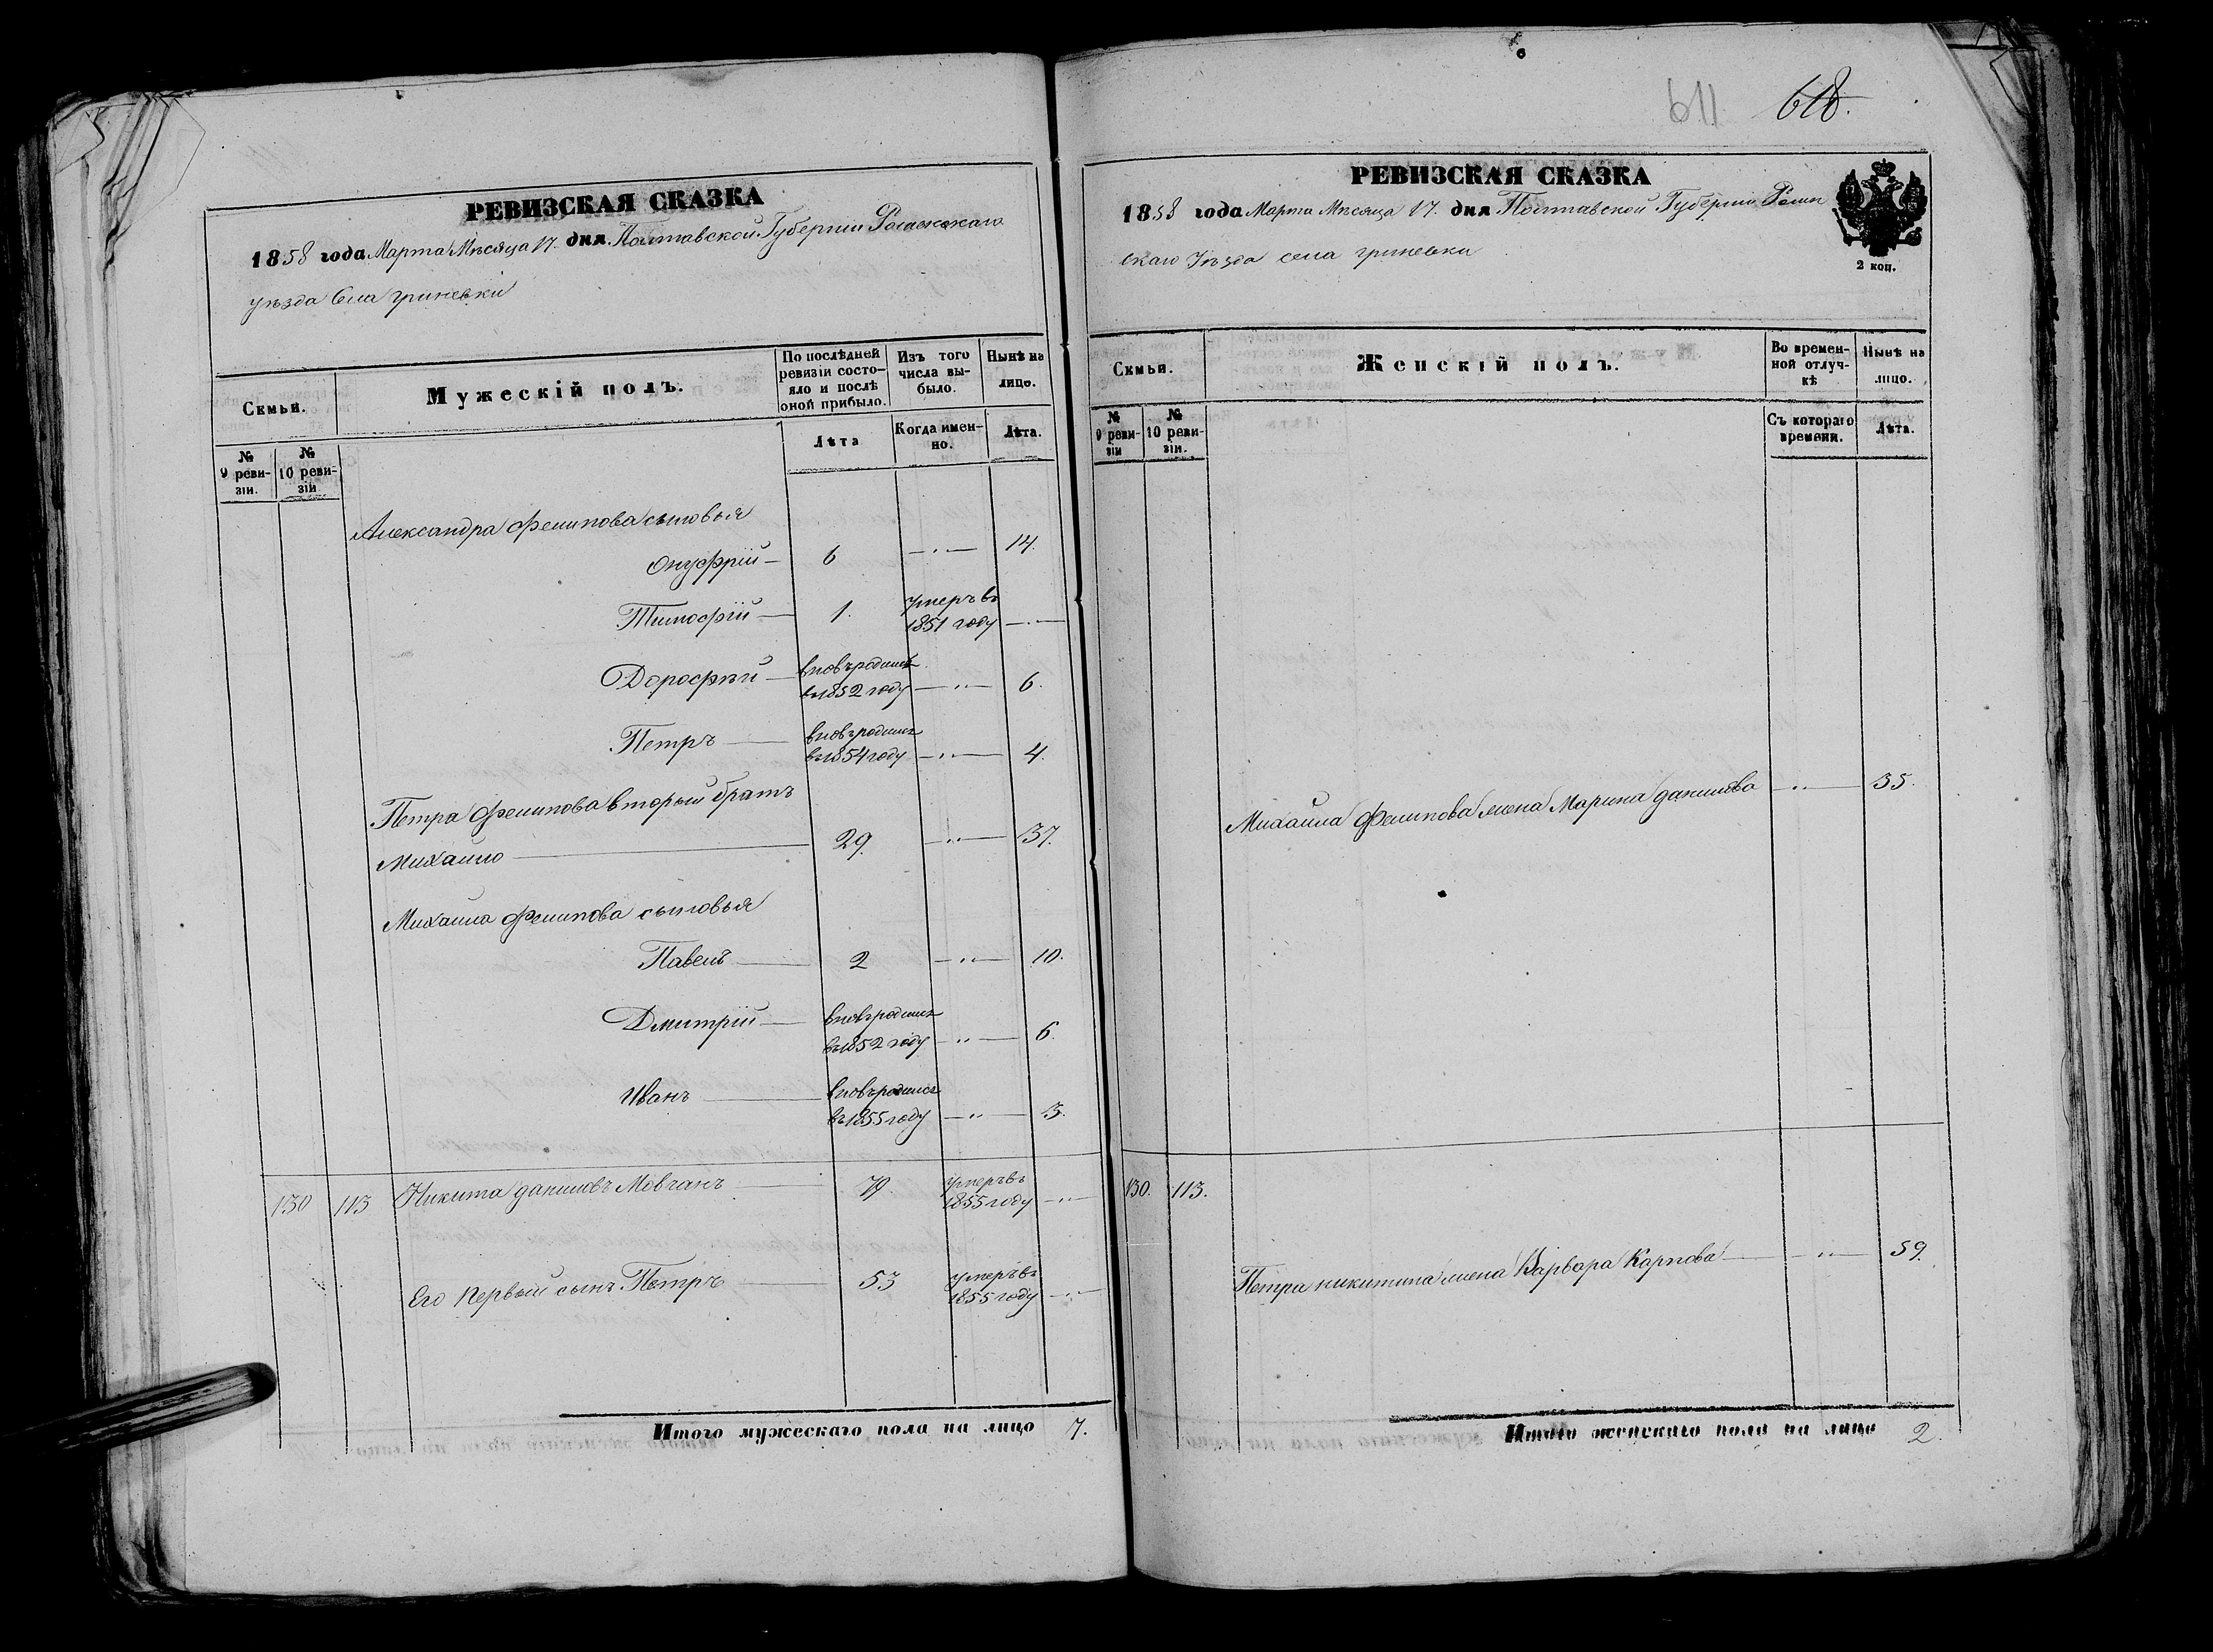 РЕВИЗСКАЯ СКАЗКА
1858 года Марта Мѣсяца 17. дня Полтавской Губерніи Роменскаго
уѣзда Села гриневки
Семьи.
Мужескій полъ.
По послѣдней ревизіи состояло и послѣ оной прибыло.
Изъ того числа выбыло.
Нынѣ на лицо.
№ 9 ревизіи.
№ 10 ревизіи
Лѣта
Когда именно.
Лѣта.
Александра Филипова сыновья
Онуфрій — 6 — 14.
Тимофій — 1. умеръ въ 1851 году —
Дорофѣй — вновьродился въ 1852 году — 6.
Петръ — вновьродился въ 1854 году — 4.
Петра Филипова вторый братъ
Михайло — 29. — 37.
Михаила Филипова сыновья
Павелъ — 2 — 10.
Дмитрій — вновьродился въ 1852 году — 6.
Иванъ — вновьродился въ 1855 году — 3.
130 113 Никита даниловъ Мовчанъ — умеръ въ 1855 году —
Его первый сынъ Петръ — 53 умеръ въ 1855 году —
Итого мужескаго пола на лицо 7.
611 618.
РЕВИЗСКАЯ СКАЗКА
1858 года Марта Мѣсяца 17. дня Полтавской Губерніи Ромен
скаго Уѣзда села гриневки
2 коп.
Семьи.
Женскій полъ.
Во временной отлучкѣ
Нынѣ на лицо.
№ 9 ревизіи
№ 10 ревизіи.
Съ котораго времени.
Лѣта.
Михаила Филипова жена Марина данилова — 35.
130. 113.
Петра никитина жена Варвара Карпова — 59.
Итого женскаго пола на лицо 2.